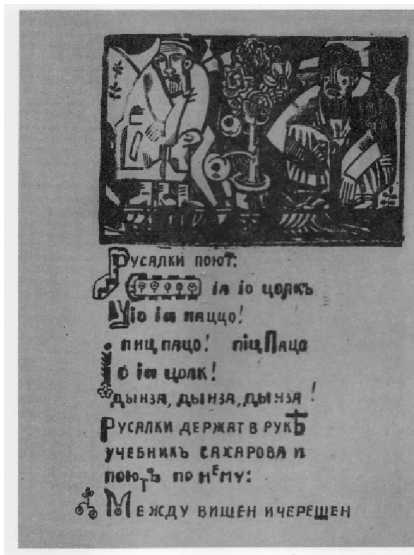 Русалки поют:
іа іо цолкъ
Uіо іа паццо!
пиц пацо! піц Пацо
іо іа цолк!
дынза, дынза, дынза!
Русалки держат в рукѣ
учебникъ Сахарова и
поютъ по нему:
Между вишен и черешен